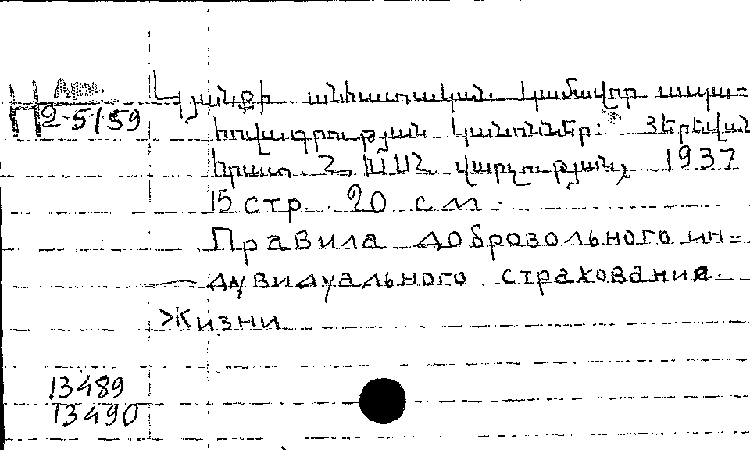 Կյանքի անհատական կամավոր ապա-
2-5159
հովագրության կանոններ։ Յերեվան
հրատ. Հ. ԱՍՀ. վարչության, 1937
15 стр. 20 см.
Правила добровольного ин-
дивидуального страхования
жизни
13489
13490